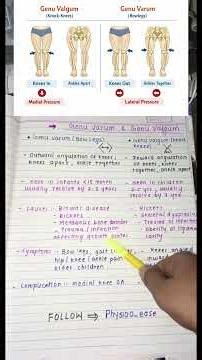 Genu Valgum
(Knock-Knees)
Genu Varum
(Bowlegs)
Knees In
Ankles Apart
Knees Out
Ankles Together
Medial Pressure
Lateral Pressure
→ Genu Varum & Genu Valgum
• Genu Varum (Bow Legs)
• Genu Valgum (Knock Knees)
- Outward angulation of knees,
knees apart, ankle together
- angulation of knees,
, ankle apart
- seen in infants <18 month
usually resolve by
- seen in children
usually resolve by
- Causes:- Blount disease
- Rickets
- Metabolic bone disorder
- Trauma / infection
affecting growth plates
- Rickets
- Skeletal dysplasia
- Trauma or infection
- Obesity or ligament
laxity
- Symptoms:- Bow legs, gait
hip / knee / ankle pain in
older children
- Complication:- medial knee OA
FOLLOW ⇒ Physioo_ease